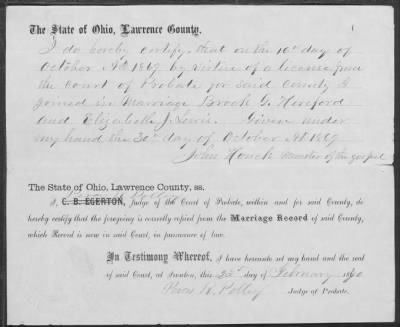 The State of Ohio, Lawrence County.
I do hereby certify, that on the 10th day of
October AD 1869 by virtue of a license from
the Court of Probate for said County I
joined in Marriage Brook G. Hereford
and Elizabeth J. Lewis. Given under
my hand the 30th day of October AD 1869
John Houck Minister of the gospel
The State of Ohio, Lawrence County, ss.
I, C. B. EGERTON, Judge of the Court of Probate, within and for said County, do
hereby certify that the foregoing is correctly copied from the Marriage Record of said County,
which Record is now in said Court, in pursuance of law.
In Testimony Whereof, I have hereunto set my hand and the seal
of said Court, at Ironton, this 23d day of February
Judge of Probate.